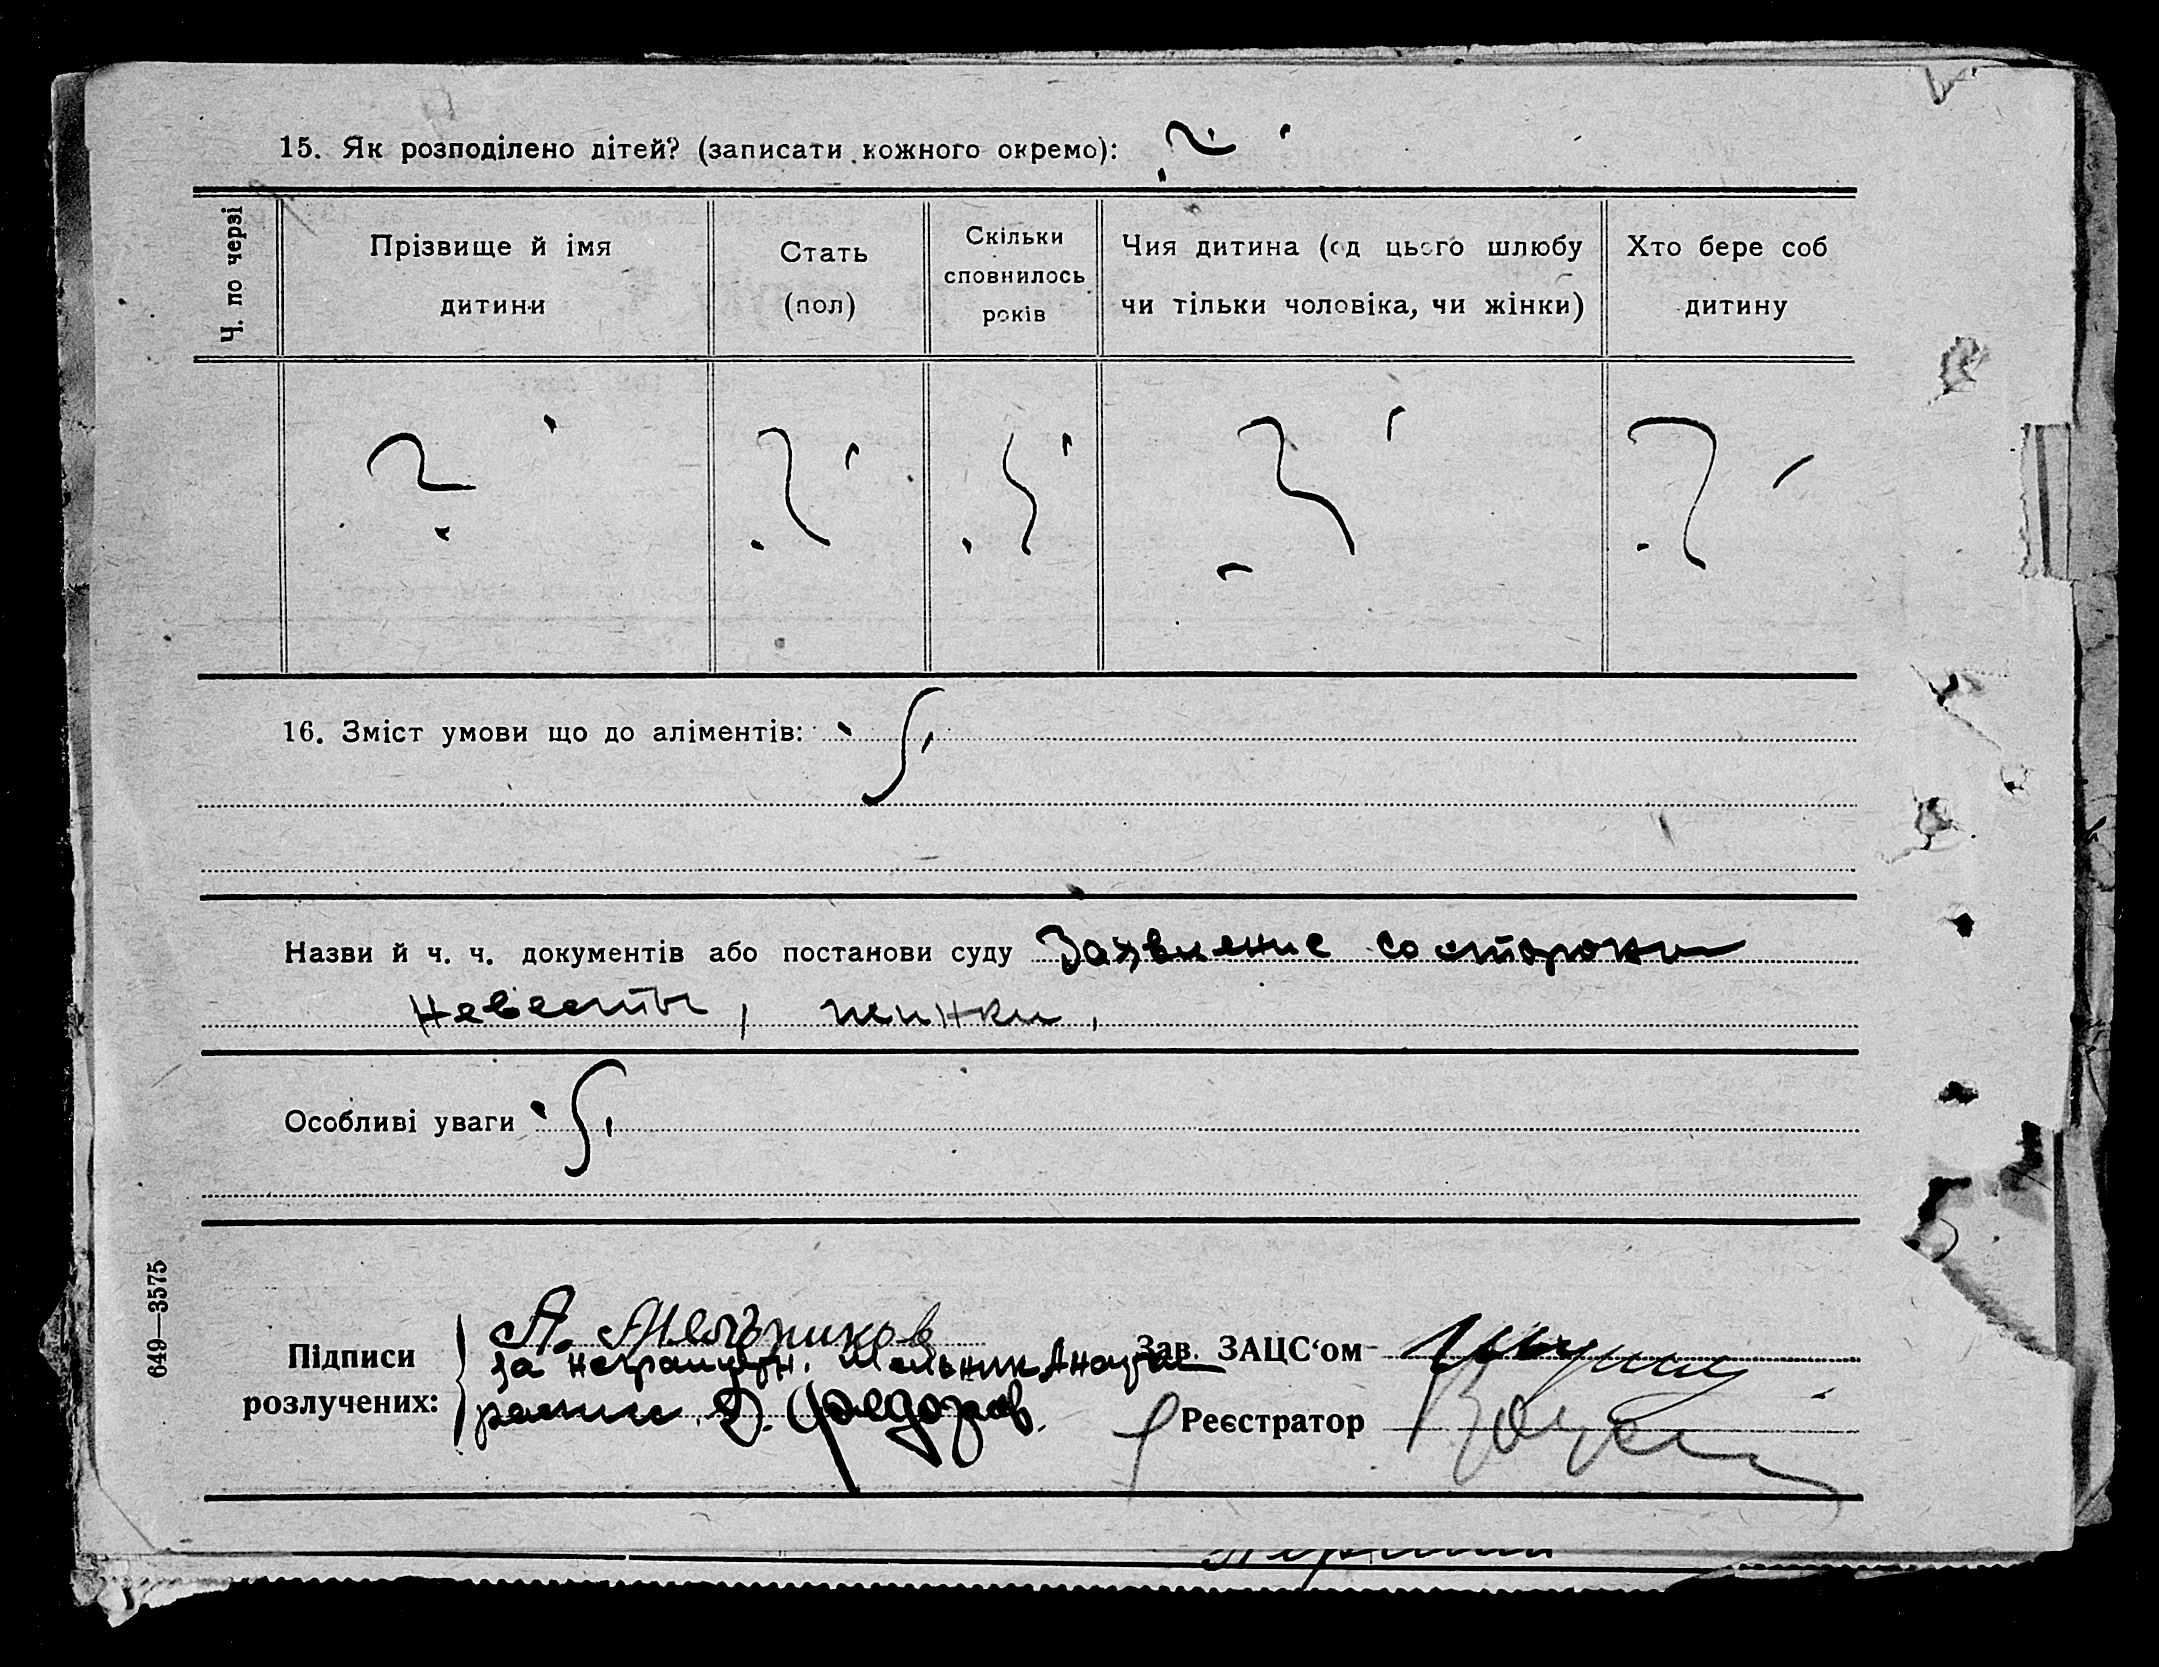 15. Як розподілено дітей? (записати кожного окремо):
Ч. по черзі
Прізвище й імя
дитини
Стать
(пол)
Скільки
сповнилось
років
Чия дитина (од цього шлюбу
чи тільки чоловіка, чи жінки)
Хто бере соб
дитину
16. Зміст умови що до аліментів:
Назви й ч. ч. документів або постанови суду Заявление со стороны
невесты, жинки.
Особливі уваги
649—3575
Підписи
розлучених:
А. Мельников
за неграмотн. Мельник
Федоров.
Зав. ЗАЦС‘ом
Реєстратор